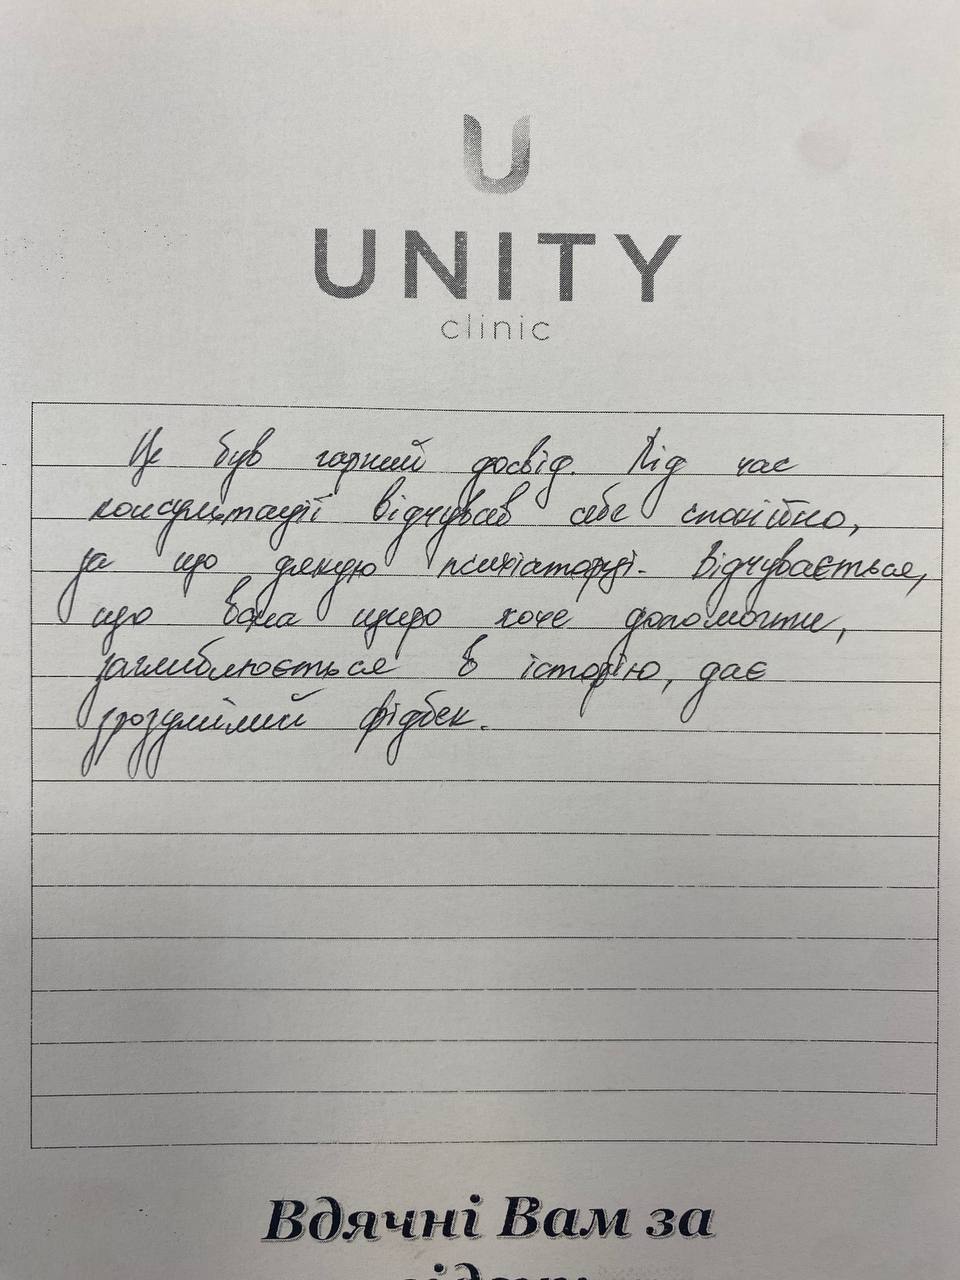 U
UNITY
clinic
Це був гарний досвід. Під час
консультації відчував себе спокійно,
за що дякую психіаторці. Відчувається,
що вона щиро хоче допомогти,
заглиблюється в історію, дає
зрозумілий фідбек.
Вдячні Вам за